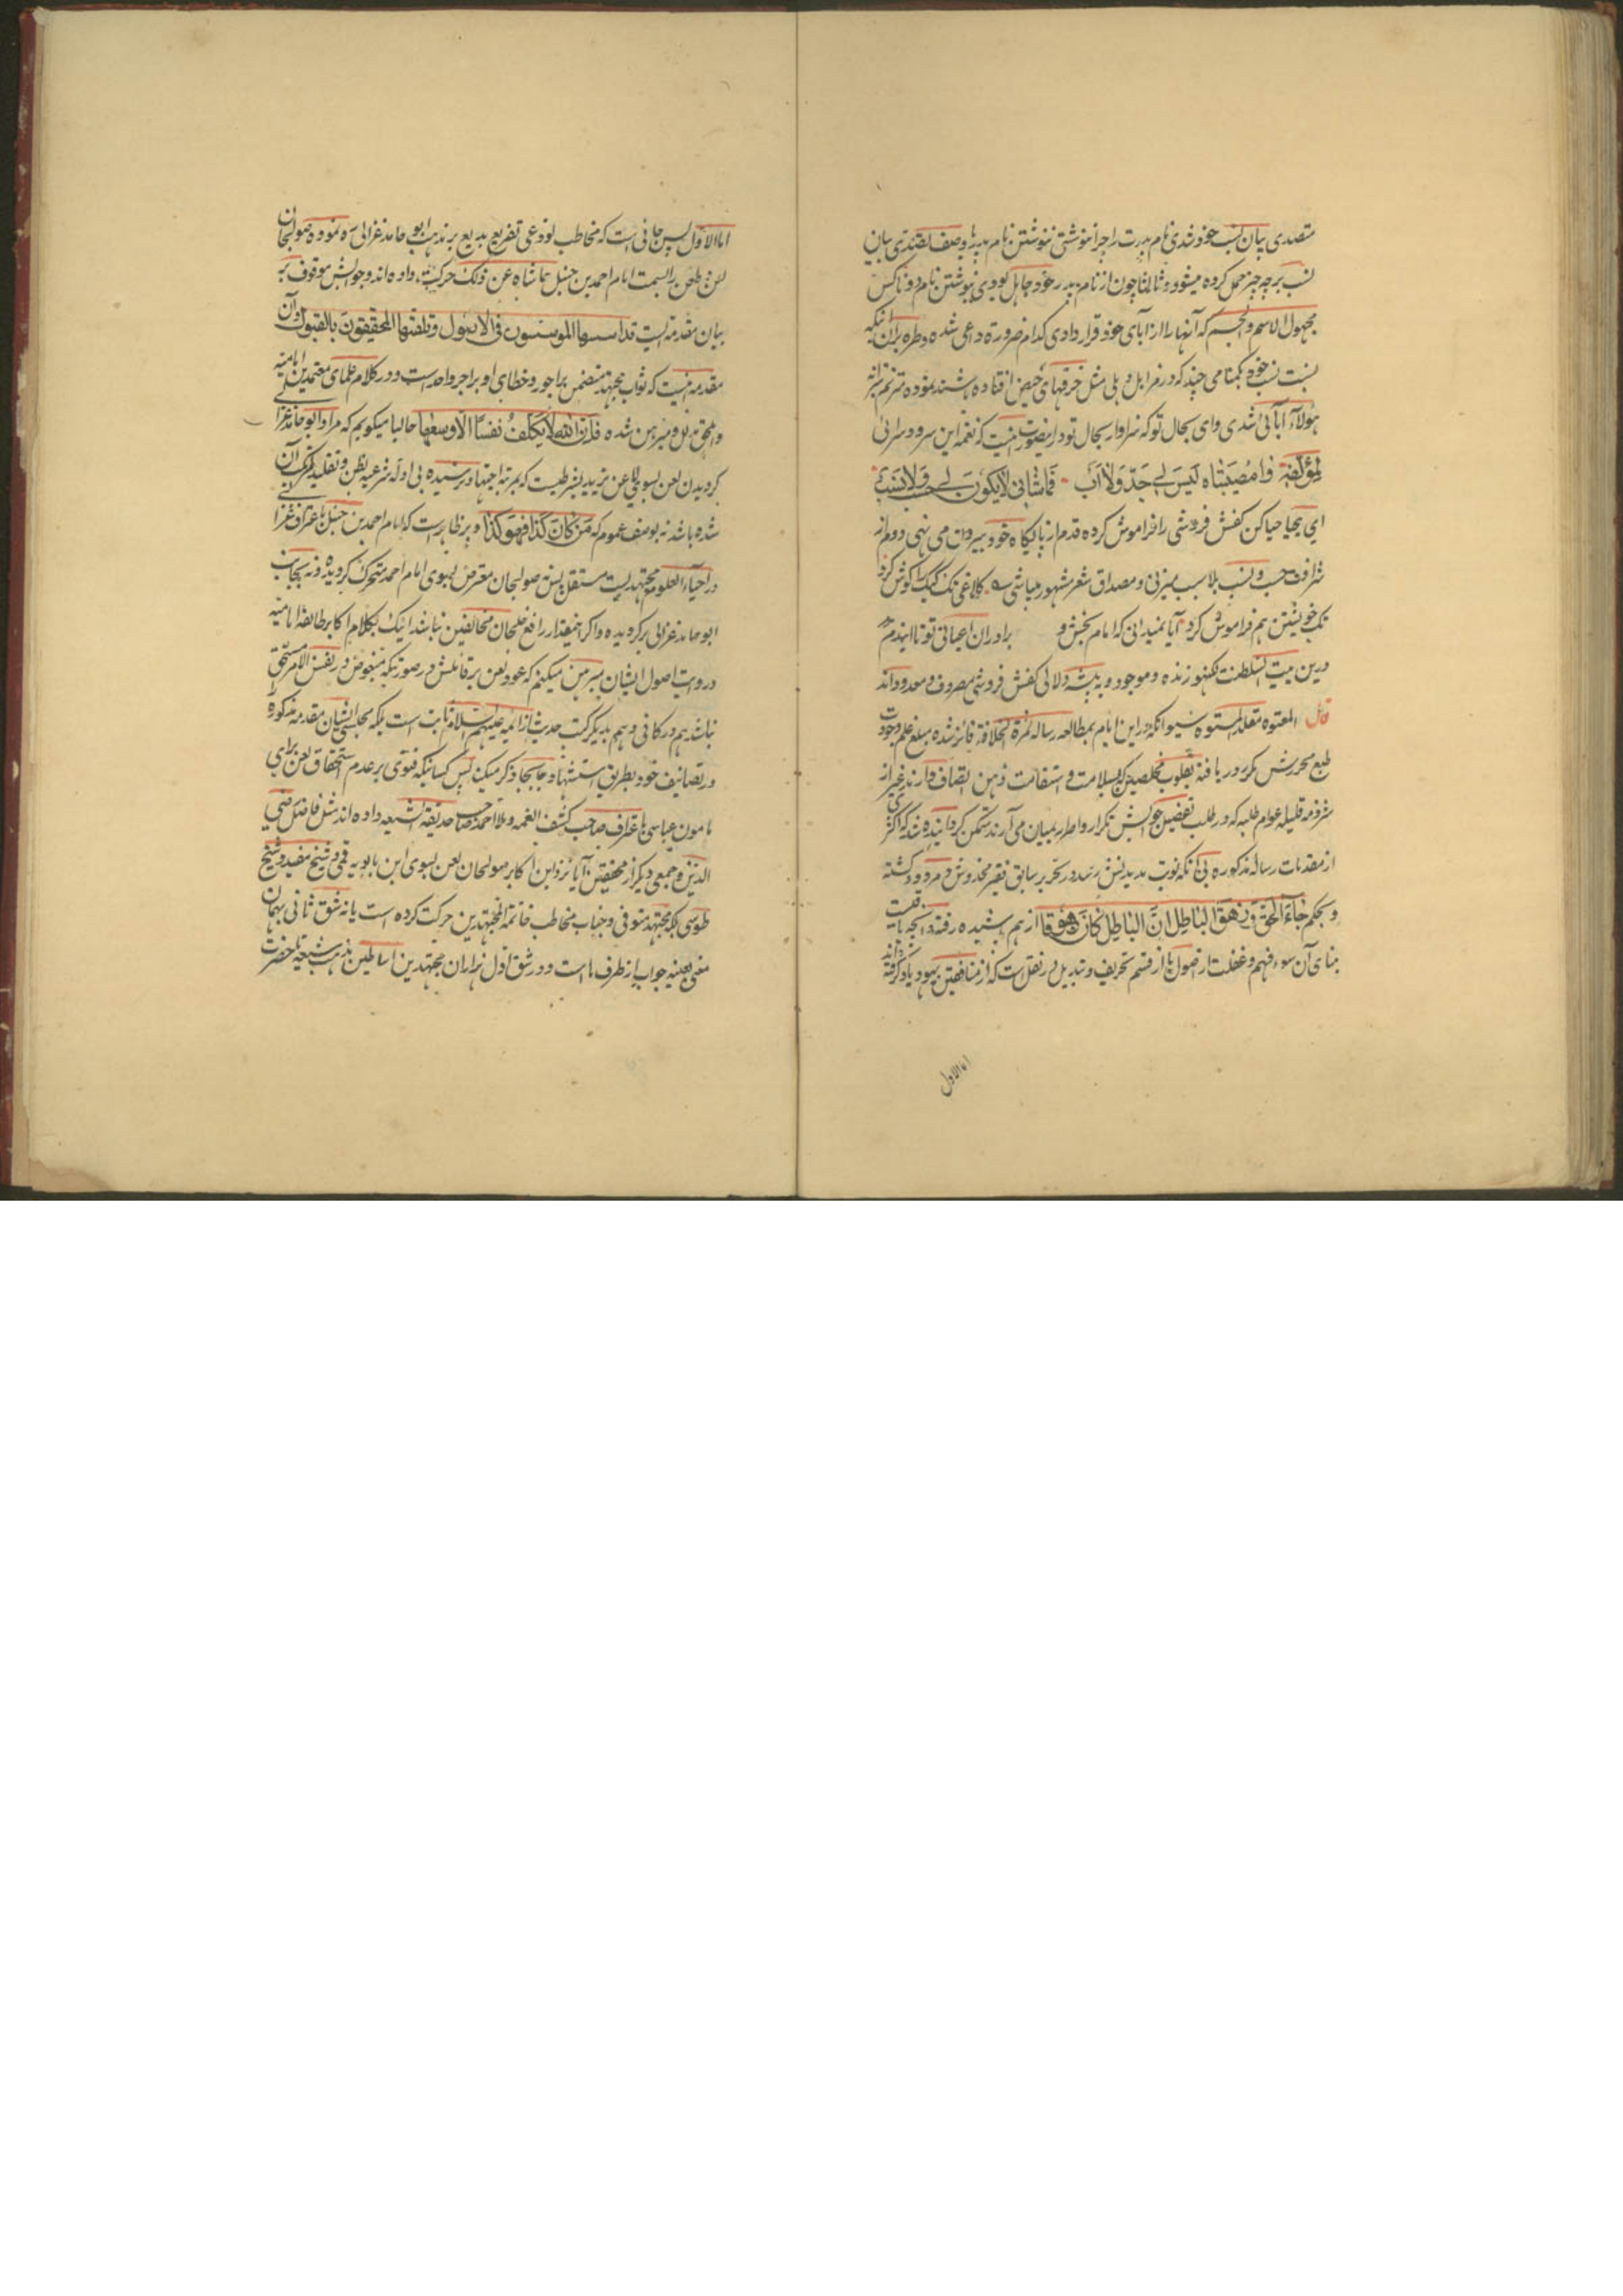 متصدی بیان نسب خود شدی نام پدرت را چرا ننوشتی ننوشتن نام پدر با وصف تصدی بیان
نسب بر چه چیز حمل کرده میشود و ثالثا چون از نام پدر خود جاهل بودی نوشتن نام دو ناکس
مجهول الاسم والجسم که آنها را از آبای خود قرار دادی کدام ضرورة داعی شده و طره بران اینکه
نسبت نسب خود بگمنامی چند که در مزابل و بلی مثل خرقهای حیض افتاده باشند نموده مترنم بترانه
هولاء آبائی شدی وای بحال تو که سزاوار بحال تو در اینصورت اینست که نغمه این سرود سرائی
لمؤلفه وا مصیبتاه لیس لی جد ولا اب فما شانی لا یکون لی حسب ولا نسب
ای بیحیا حیا کن کفش فروشی را فراموش کرده قدم از پایگاه خود بیرون می نهی و دم از
شرافت حسب و نسب بلا سبب میزنی و مصداق شعر مشهور میباشی کلاغی تک کبک را گوش کرد
تک خویشتن هم فراموش کرد آیا نمیدانی که امام بخش و برادران اعیانی تو تا ایندم
درین بیت السلطنت لکهنو زنده و موجود و به پیشه دلالی کفش فروشی مصروف و معدود اند
قال المعتوه مقلد المستوه شیوا آنکه در این ایام بمطالعه رساله ثمرة الخلافة فائز شده مبلغ علم وجودت
طبع محررش مکرر دریافته بقلوب مخلصین که بسلامت و استقامت ذهن اتصاف دارند غیر از
شرذمه قلیله عوام طلبه که در طلب تفضیل جوابش تکرار و اصرار بمیان می آرند متمکن گردانیده شد که اکثری
از مقدمات رساله مذکوره بی آنکه نوبت بدیدنش رسد در تحریر سابق فقیر مخدوش و مردود گشته
و بحکم جاء الحق و زهق الباطل ان الباطل کان زهوقا از هم پاشیده رفته و آنچه باقیست
بنای آن سوء فهم و غفلت از اصول یا از قسم تحریف و تبدیل در نقل است که از منافقین یهود یاد گرفته اند
اما الاول
اما الاول پس جائی است که مخاطب لوذعی تفریع بدیع بر مذهب ابو حامد غزالی نموده صولجان
لعن و طعن را بسمت امام احمد بن حنبل حاشاه عن ذلک حرکت داده اند و جوابش موقوف بر
بیان مقدمه ایست قد اسسها الموسسون فی الاصول وتلقتها المحققون بالقبول و آن
مقدمه اینست که ثواب مجتهد متضمن براجور و خطای او بر اجر واحد است و در کلام علمای معتمدین امامیه
واضح و مبرهن شده فان الله لا یکلف نفسا الا وسعها حالیا میگویم که مراد ابو حامد غزالی
گردیدن لعن بسوی لاعن یزید بشرطیست که بمرتبه اجتهاد نرسیده بی ادله شرعیه بظن و تقلید مرتکب آن
شده باشد نه بوصف عموم که من کان کذا فهو کذا و پر ظاهر است که امام احمد بن حنبل باعتراف غزالی
در احیاء العلوم مجتهدیست مستقل پس صولجان معترض بسوی امام احمد متحرک گردیده و نه بجانب
ابو حامد غزالی برگردیده و اگر اینمقدار رافع خلجان مخالفین نباشد اینک بکلام اکابر طائفه امامیه
و روایت اصول ایشان مبرهن میکنم که عود لعن بر قائلش در صورتیکه مبغوض در نفس الامر مستحق
نباشد هم در کافی و هم بدیگر کتب حدیث از ائمه علیهم السلام ثابت است بلکه مجلسی ایشان مقدمه مذکوره را
در تصانیف خود بطریق استشهاد جا بجا ذکر میکند پس کسانیکه فتوی بر عدم استحقاق لعن برای
مامون عباسی باعتراف صاحب کشف الغمه و ملا احمد صاحب حدیقة الشیعه داده اند مثل فاضل رضی
الدین و جمعی دیگر از محققین آیا نزد این اکابر صولجان لعن بسوی ابن بابویه قمی و شیخ مفید و شیخ
طوسی بلکه مجتهد متوفی و جناب مخاطب خاتمة المجتهدین حرکت کرده است یا نه شق ثانی بهمان
معنی بعینه جواب از طرف ما است و در شق اول هزاران مجتهدین اساطین مذهب شیعه تا حضرت